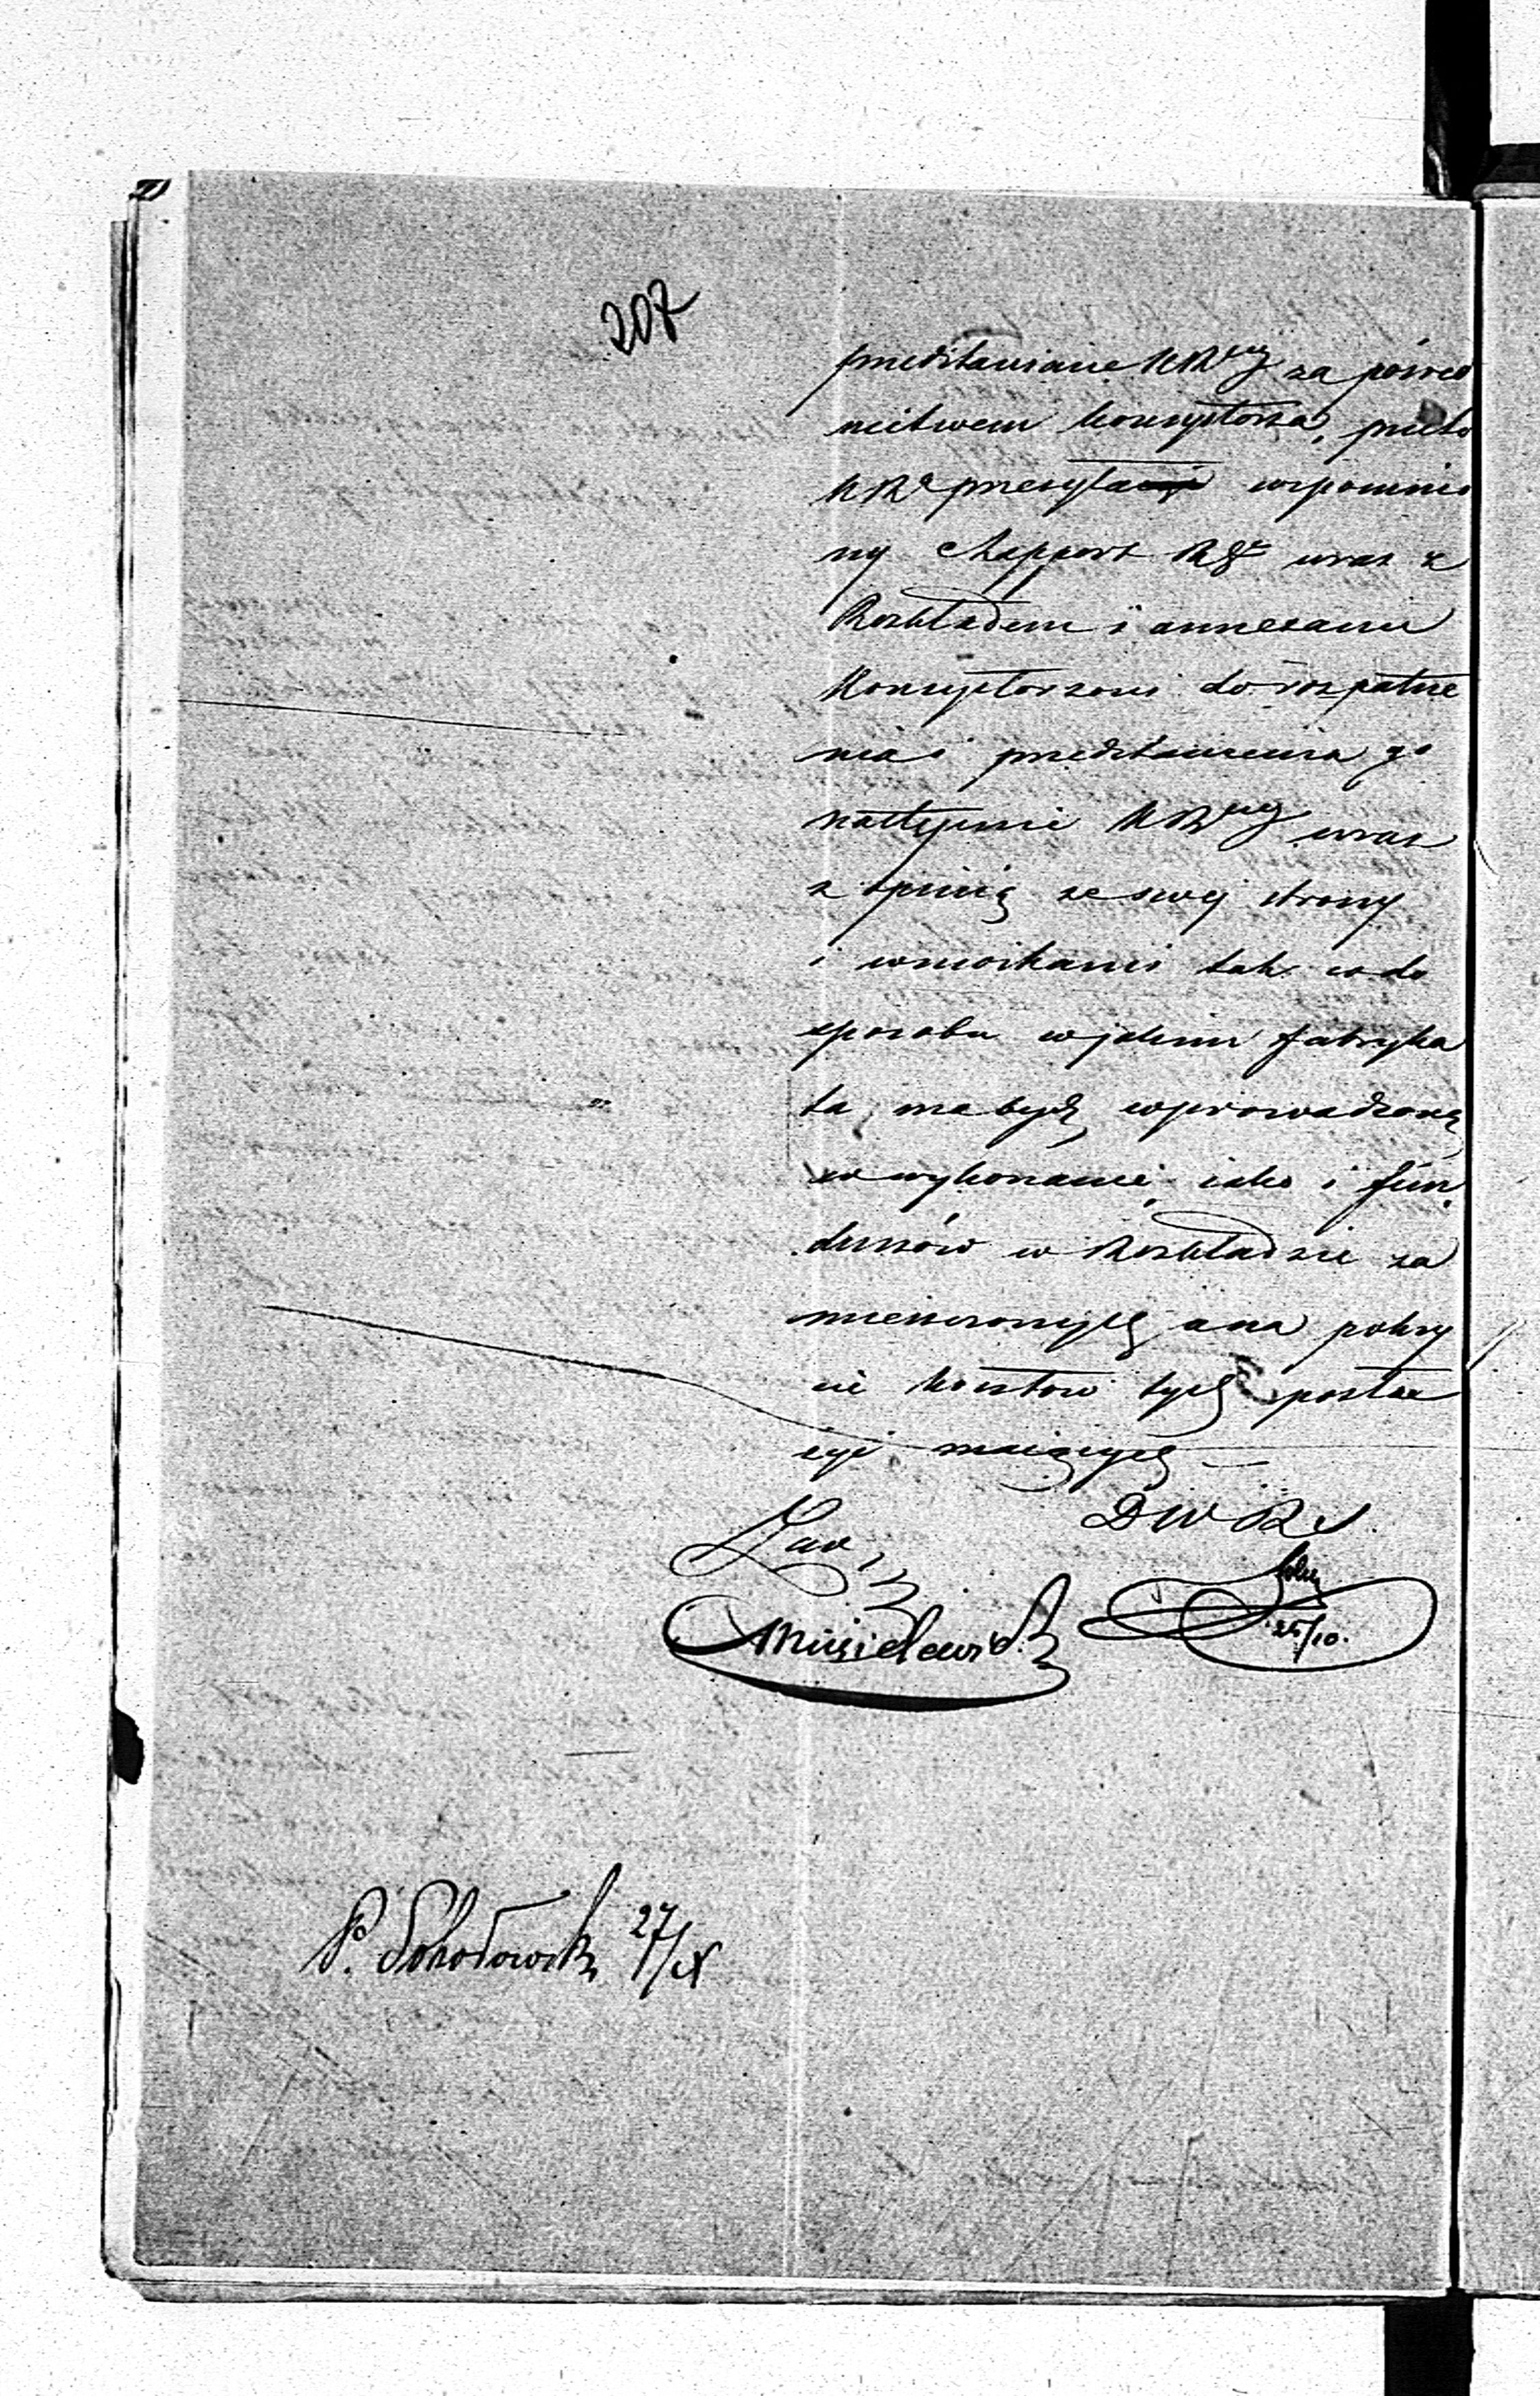 207
przedstawiane KRwej za pośred
nictwem konsystorza, przeto
KRz przesyła wspomnio
ny Rapport RGu wraz z
Rozkładem i annexami
Konsystorzowi do rozpatrze
nia i przedstawienia go
następnie KRwej wraz
z opinią ze swej strony
i wnioskami tak co do
sposobu w jakim fabryka
ta ma bydź wprowadzoną
w wykonanie, iako i fun
duszów w Rozkładzie za
mieszczonych, a na pokry
cie kosztów tych posłu
żyć maiących
DWR
25/10.
P. Sokołowski 27/IX